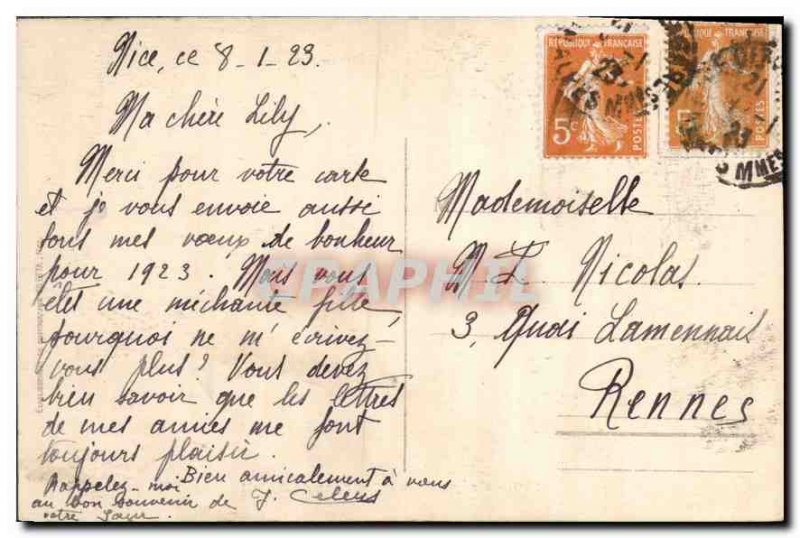 Nice, ce 8-1-23.
Ma chère Lily,
Merci pour votre carte
et je vous envoie aussi
tous mes vœux de bonheur
pour 1923. Mais vous
êtes une méchante fille,
pourquoi ne m'écrivez-
vous plus? Vous devez
bien savoir que les lettres
de mes amies me font
toujours plaisir.
Bien amicalement à vous
Rappelez-moi
au bon souvenir de
votre
REPUBLIQUE FRANÇAISE
5c
POSTES
POSTES
Mademoiselle
Nicolas
3, Quai Lamennais
Rennes
EPAPHIL